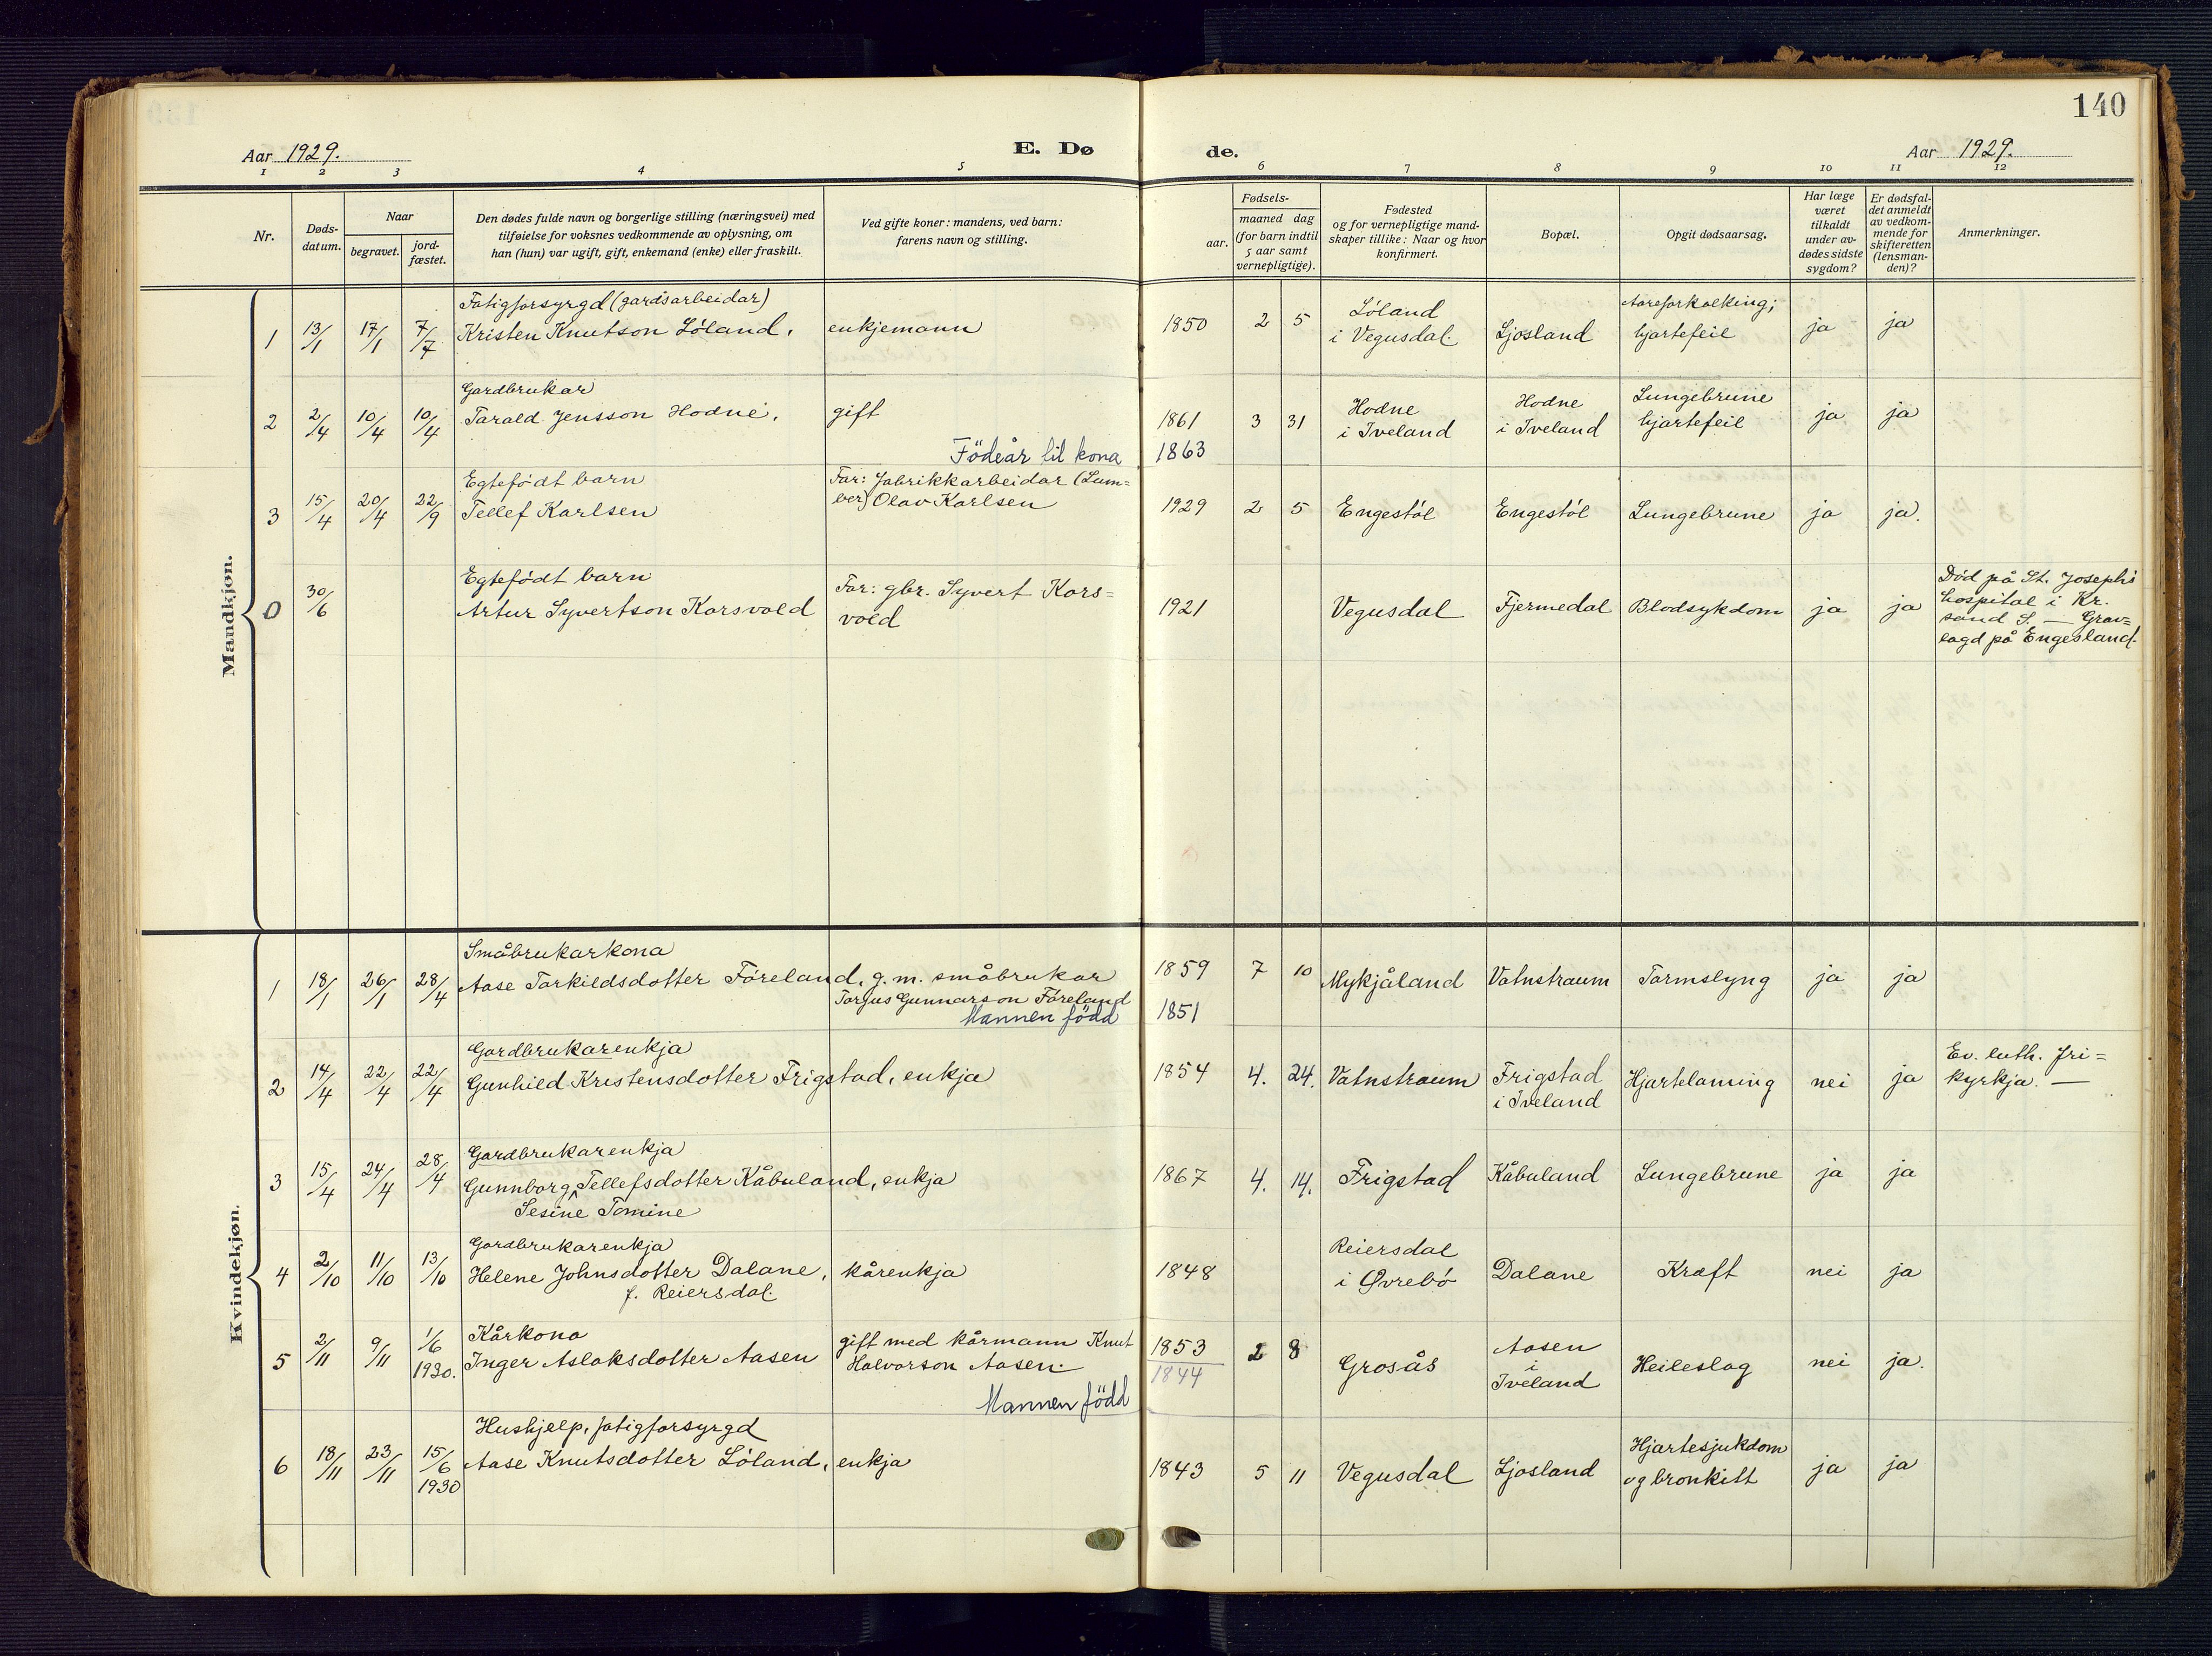 140
Aar 1929.
E. Dø
de.
Aar 1929.
1 2 3 4 5 6 7 8 9 10 11 12
Nr.
Døds-
datum.
Naar
begravet.
jord-
fæstet.
Den dødes fulde navn og borgerlige stilling (næringsvei) med
tilføielse for voksnes vedkommende av oplysning, om
han (hun) var ugift, gift, enkemand (enke) eller fraskilt.
Ved gifte koner: mandens, ved barn:
farens navn og stilling.
Fødsels-
aar.
maaned dag
(for barn indtil
5 aar samt
vernepligtige).
Fødested
og for vernepligtige mand-
skaper tillike: Naar og hvor
konfirmert.
Bopæl.
Opgit dødsaarsag.
Har læge
været
tilkaldt
under av-
dødes sidste
sygdom?
Er dødsfal-
det anmeldt
av vedkom-
mende for
skifteretten
(lensman-
den)?
Anmerkninger.
Mandkjøn.
Fatigforsyrgd (gardsarbeidar)
1 13/1 17/1 7/7 Kristen Knutson Løland, enkjemann 1850 2 5
Løland
i Vegusdal.
Ljosland
Aareforkalking;
hjartefeil
ja ja
Gardbrukar
2 2/4 10/4 10/4 Tarald Jensson Hodne, gift 1861 3 31
Hodne
i Iveland
Hodne
i Iveland
Lungebrune
hjartefeil
ja ja
Födeår til kona 1863
Egtefødt barn
3 15/4 20/4 22/9 Tellef Karlsen
Far: fabrikkarbeidar (Lum=
ber) Olav Karlsen
1929 2 5 Engestøl Engestøl Lungebrune ja ja.
Egtefødt barn
0 30/6 Artur Syvertson Karsvold
Far: gbr. Syvert Kors=
vold
1921 Vegusdal Fjermedal Blodsykdom ja ja
Død på St. Josephs
hospital i Kr.
sand S. — Grav=
lagd på Engesland.
Kvindekjøn.
Småbrukarkona
1 18/1 26/1 28/4 Aase Tarkildsdotter Føreland, g. m. småbrukar
Torjus Gunnarson Føreland
1859 7 10 Mykjåland Vatnstraum Tarmslyng ja ja
Mannen född 1851
Gardbrukarenkja
2 14/4 22/4 22/4 Gunhild Kristensdotter Frigstad, enkja 1854 4. 24. Vatnstraum
Frigstad
i Iveland
Hjartelaming nei ja
Ev. luth. fri=
kyrkja. —
Gardbrukarenkja
3 15/4 24/4 28/4 Gunnborg Tellefsdotter Kåbuland, enkja
Sesine Tomine
1867 4. 14. Frigstad Kåbuland Lungebrune ja ja
Gardbrukarenkja
4 2/10 11/10 13/10 Helene Johnsdotter Dalane, kårenkja
f. Reiersdal.
1848
Reiersdal
i Øvrebø
Dalane Kræft nei ja
Kårkona
5 2/11 9/11 1/6 1930. Inger Aslaksdotter Aasen
gift med kårmann Knut
Halvorson Aasen.
1853 2 8 Grosås
Aasen
i
Iveland
Heileslag nei ja.
1844
Mannen född
Hushjelp, fatigforsyrgd
6 18/11 23/11 15/6 1930 Aase Knutsdotter Løland, enkja 1843 5 11 Vegusdal Ljosland
Hjartesjukdom
og bronkitt
ja ja